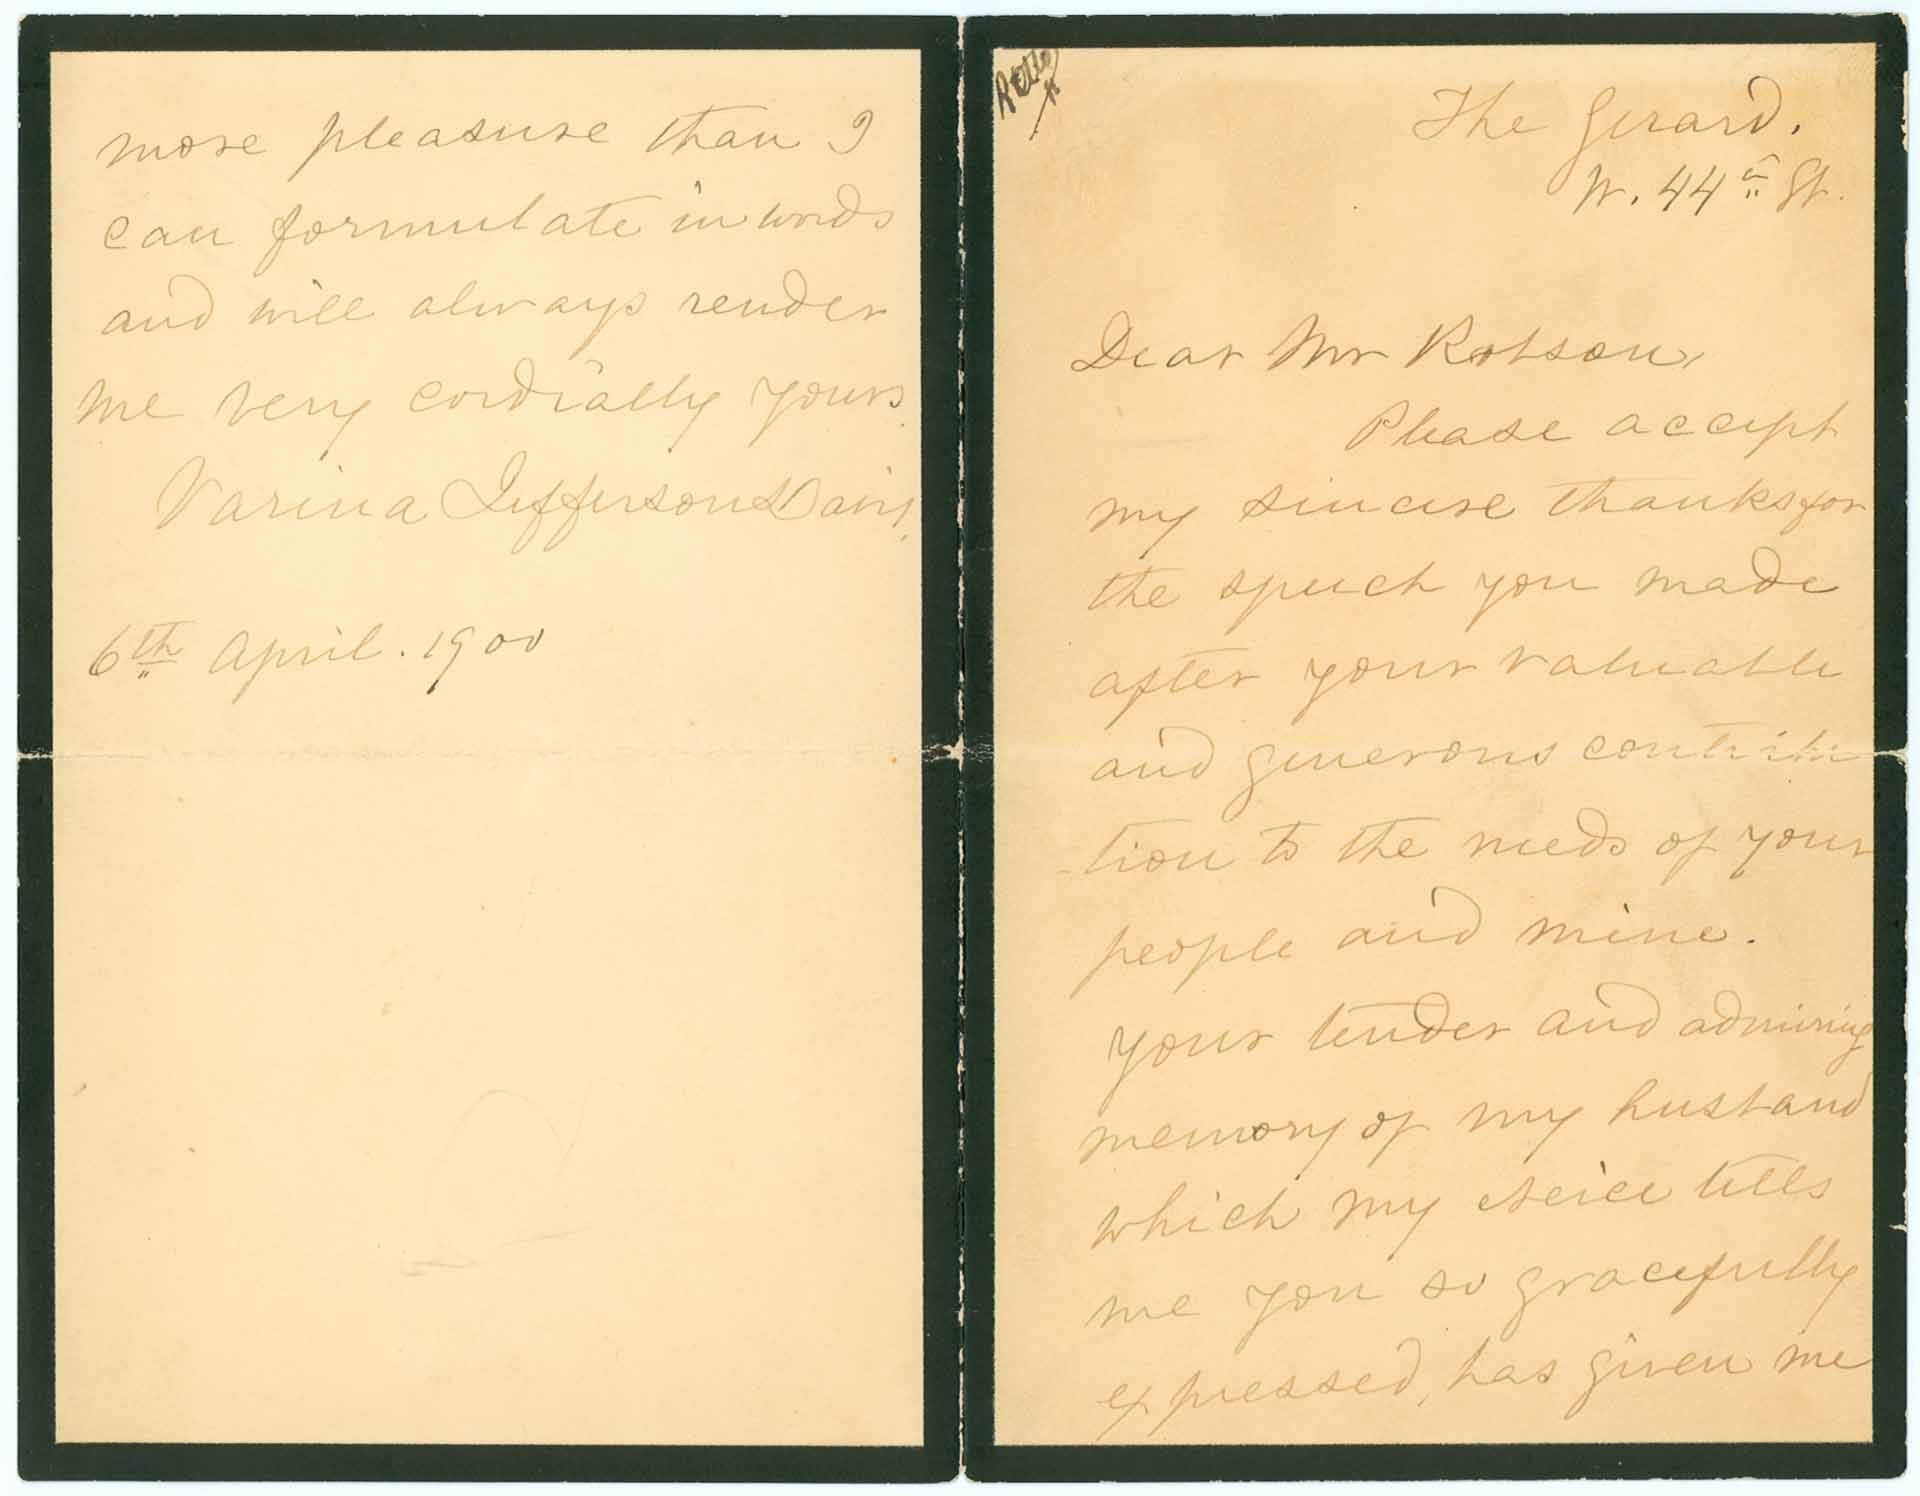 The Girard.
W. 44th St.
Dear Mr Robson,
Please accept
my sincere thanks for
the speech you made
after your valuable
and generous contribu
-tion to the needs of your
people and mine.
Your tender and admiring
memory of my husband
which my neice tells
me you so gracefully
expressed, has given me
more pleasure than I
can formulate in words
and will always render
me very cordially yours.
Varina Jefferson Davis.
6th April. 1900